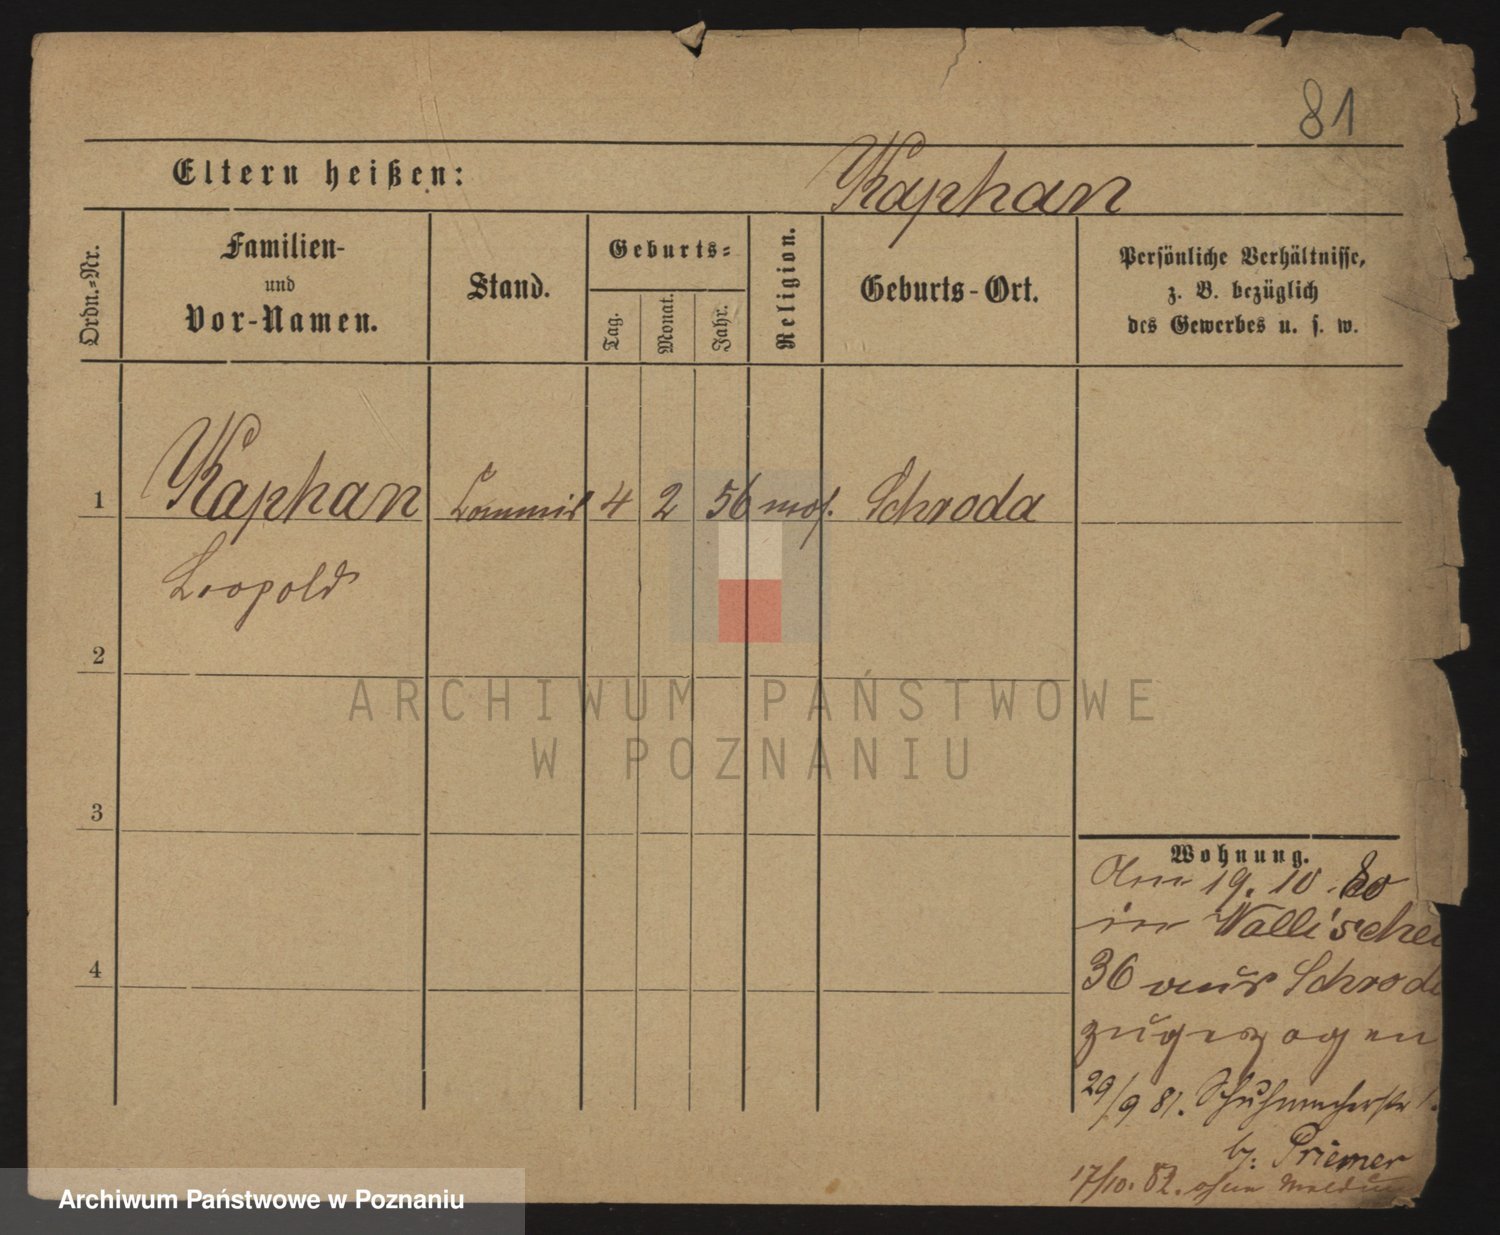 81
Eltern heißen:
Kaphan
Ordn.-Nr.
Familien-
und
Vor-Namen.
Stand.
Geburts-
Tag.
Monat.
Jahr.
Religion.
Geburts-Ort.
Persönliche Verhältnisse,
z. B. bezüglich
des Gewerbes u. s. w.
1 Kaphan Commis 4 2 56 mos. Schroda
Leopold
2
3
4
ARCHIWUM PAŃSTWOWE
W POZNANIU
Wohnung.
Am 19. 10. 80
in Wallischei
36 aus Schrod
zugezogen
29/9 81. Schuhmacherstr
b: Priemer
17/10. 82. ohne Meldun
Archiwum Państwowe w Poznaniu